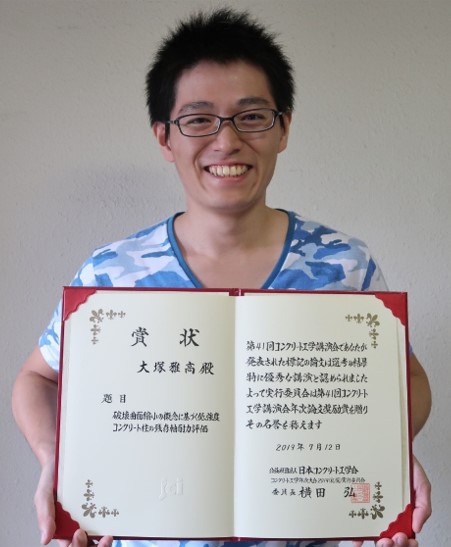 賞状
大塚雅高殿
題目
破壊曲面縮小の概念に基づく低強度
コンクリート柱の残存軸耐力評価
第41回コンクリート工学講演会であなたが
発表された標記の論文は選考の結果
特に優秀な講演と認められました
よって実行委員会は第41回コンクリート
工学講演会年次論文奨励賞を贈り
その名誉を称えます
2019年7月12日
公益社団法人日本コンクリート工学会
コンクリート工学年次大会2019(札幌)実行委員会
委員長 横田 弘